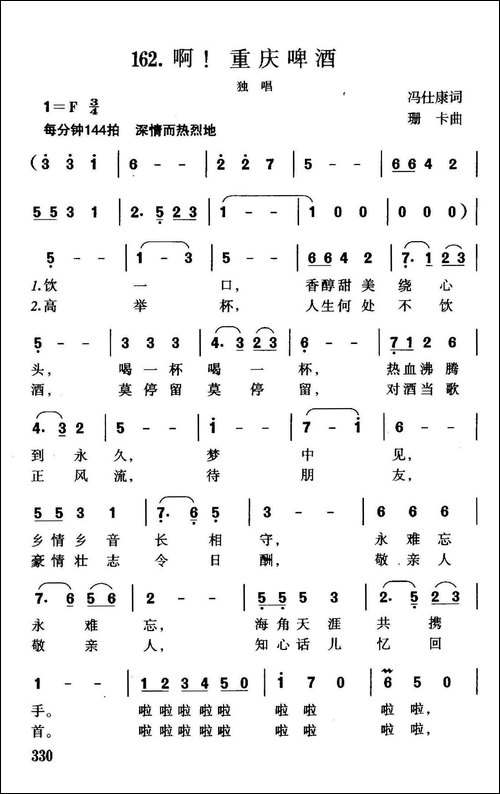 162. 啊！ 重庆啤酒
独 唱
1=F 3/4
冯仕康词
每分钟144拍 深情而热烈地
珊 卡曲
( 3 3 1 | 6 - - | 2 2 7 | 5 - - | 6 6 4 2 |
5 5 3 1 | 2. 5 2 3 | 1 - - | 1 0 0 | 0 0 0 ) |
5 - - | 1 - 3 | 5 - - | 6 6 4 2 | 7. 1 2 3 |
1.饮 一 口， 香醇甜 美 绕 心
2.高 举 杯， 人生何 处 不 饮
5 - - | 3 3 3 | 4. 3 2 3 | 6 - - | 7 1 2 6 |
头， 喝 一 杯 喝 一 杯， 热血沸 腾
酒， 莫 停 留 莫 停 留， 对酒当 歌
4. 3 2 | 5 - - | i - - | 7 - i | 6 - - |
到 永 久， 梦 中 见，
正 风 流， 待 朋 友，
5 5 3 1 | 2 - - | 7. 6 5 | 3 - - | 6 6 6 |
乡 情 乡 音 长 相 守， 永 难 忘
豪 情 壮 志 令 日 酬， 敬 亲 人
7. 6 5 6 | 2 - - | 5 5 5 3 | 2. 5 2 3 |
永 难 忘， 海 角 天 涯 共 携
敬 亲 人， 知 心 话 儿 忆 回
1 - - | 1 2 3 4 5 0 | 5 1 7 0 | 6 5 0 |
手。 啦 啦 啦 啦 啦 啦 啦 啦 啦，
首。 啦 啦 啦 啦 啦 啦 啦 啦 啦，
330